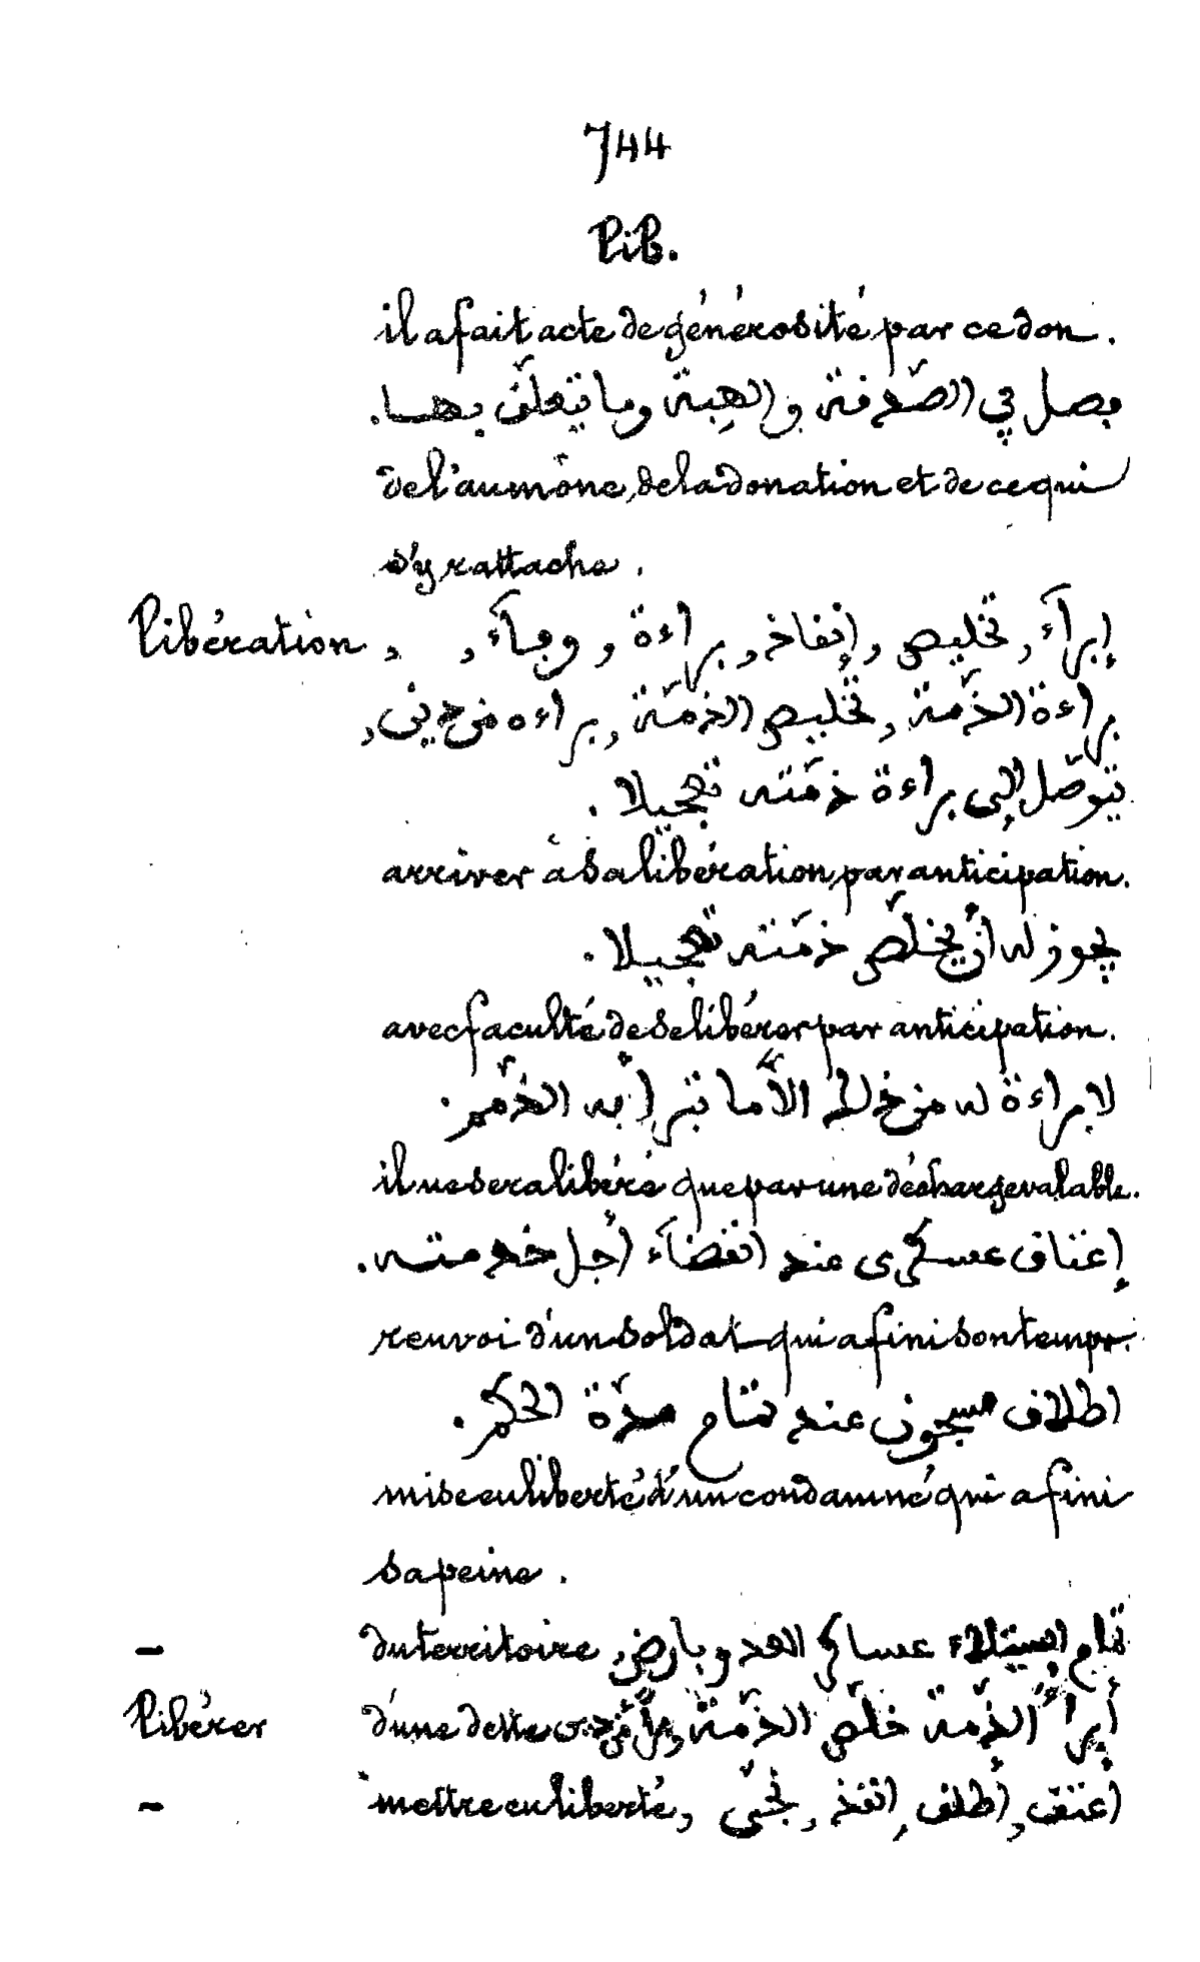 744
Lib.
il a fait acte de générosité par ce don.
فصل في الصّدقة والهبة وما يتعلّق بهـا.
de l'aumône, de la donation et de ce qui
s'y rattache.
Libération, إبرآء, تخليص, إنقاذ, براءة, وفآء,
براءة الذّمة, تخليص الذمّة, براءه من دين,
يتوصّل إلى براءة ذمّته تعجيلا.
arriver à sa libération par anticipation.
يجوز له أن يخلّص ذمّته تعجيلا.
avec faculté de se libérer par anticipation.
لا براءة له من ذلك الاّ ما تبرأ به الذّمم.
il ne sera libéré que par une décharge valable.
إعتاق عسكرى عند انقضآء أجل خدمته.
renvoi d'un soldat qui a fini son temps.
اطلاق مسجون عند تمام مدّة الحكم.
mise en liberté d'un condamné qui a fini
sa peine.
– du territoire, تمام استيلاء عساكر العدو بارض
Libérer d'une dette أبرأ الذّمة خلّص الذمّة
– mettre en liberté, أعتق, أطلق, انقذ, نجّى